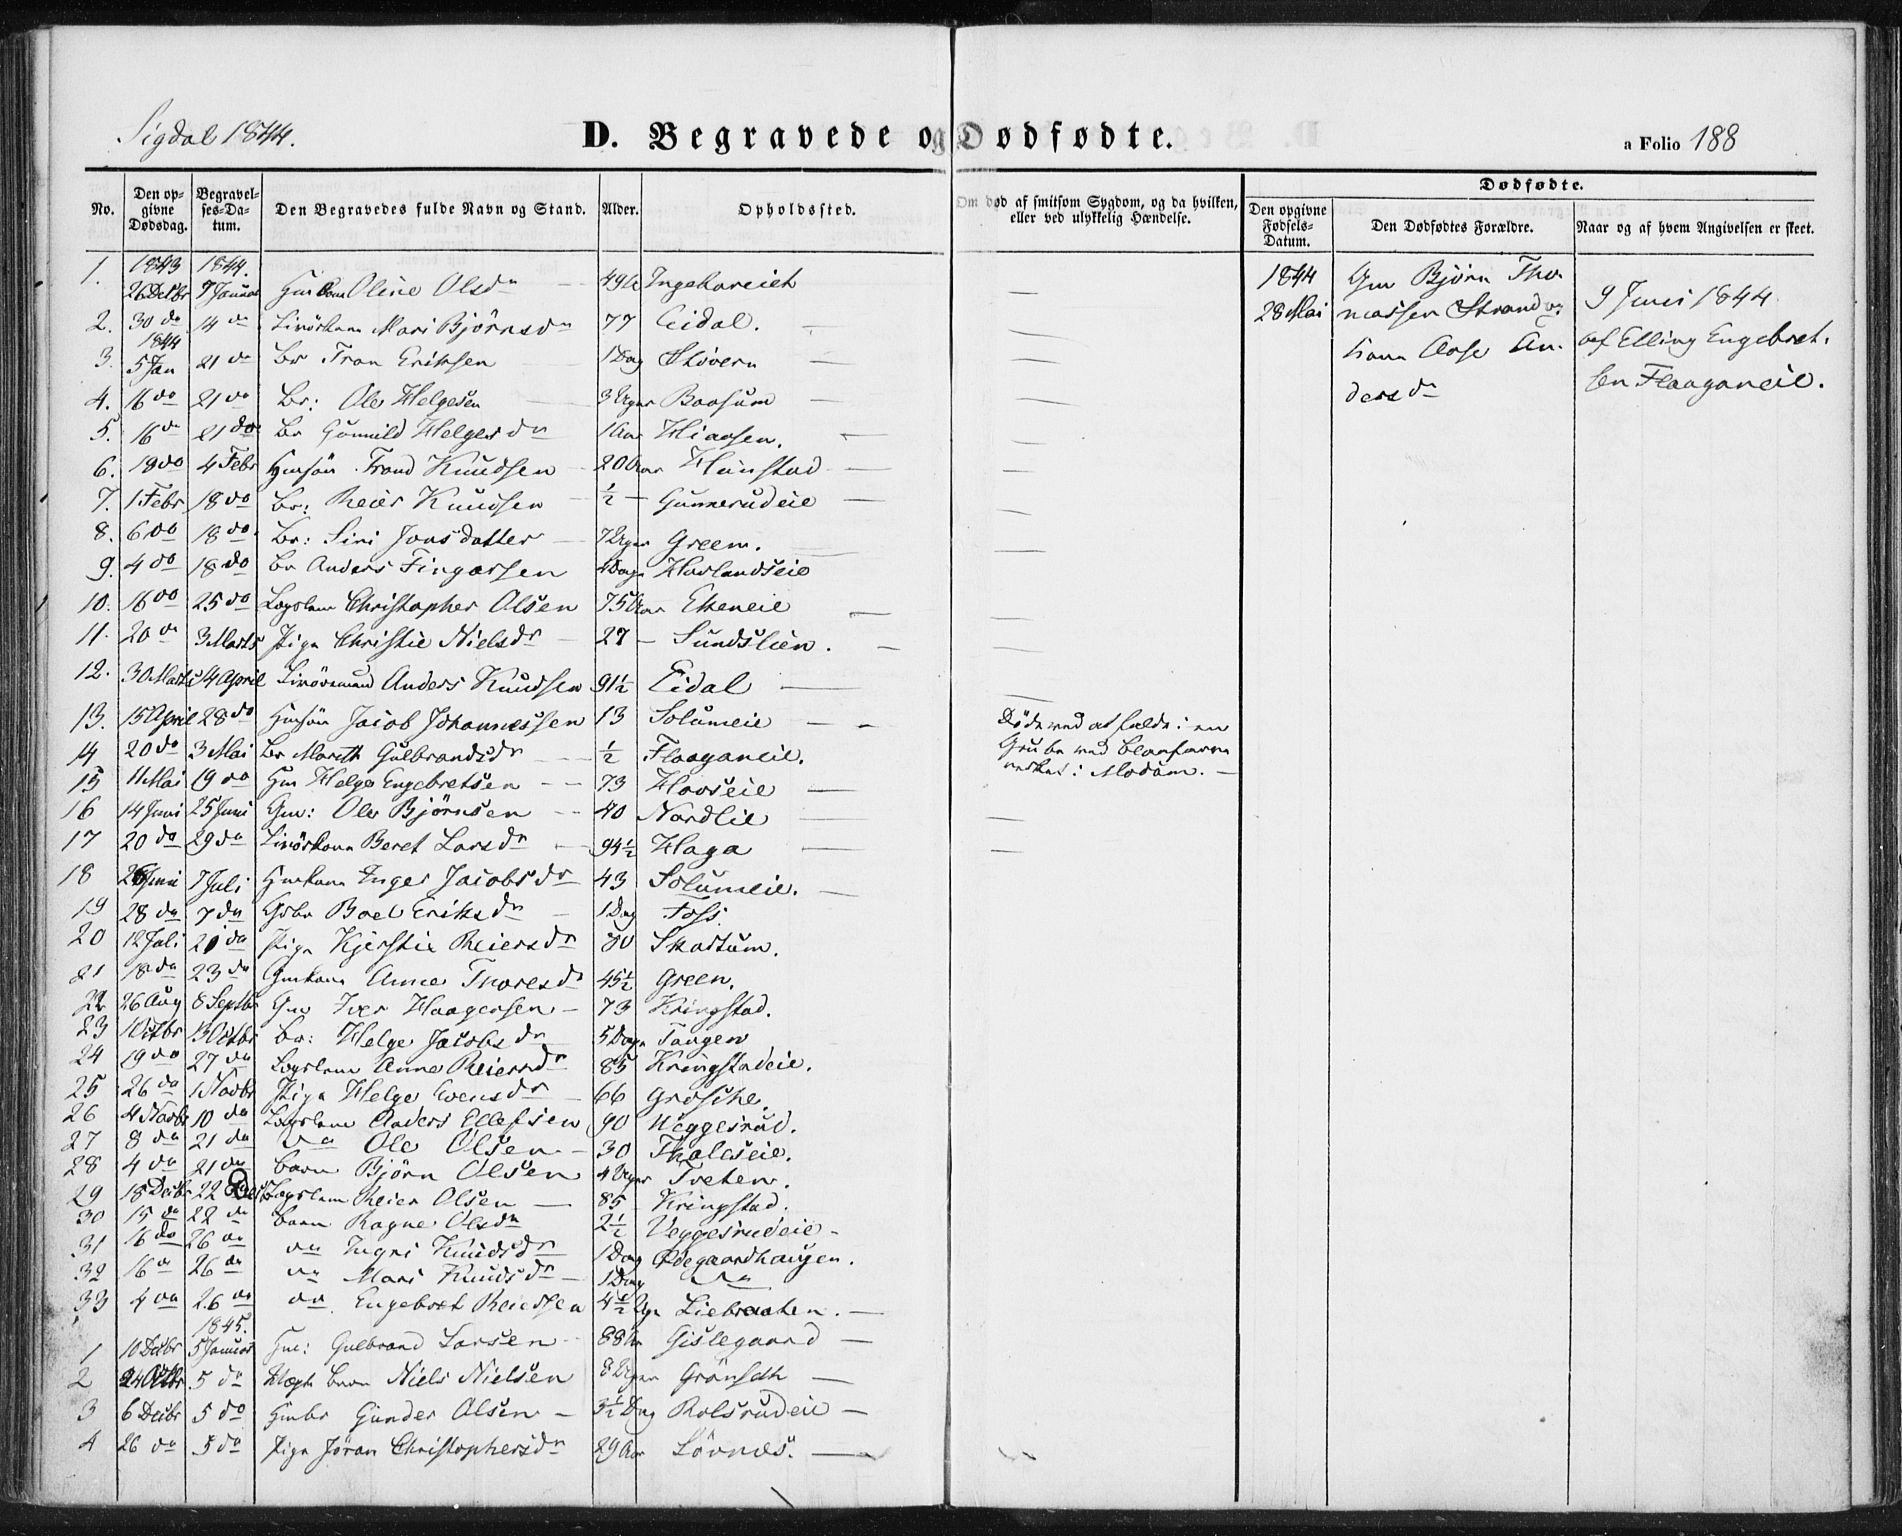 Sigdal 1844.
D. Begravede og Dødfødte.
a Folio 188
No.
Den opgivne Dødsdag.
Begravelses-Datum.
Den Begravedes fulde Navn og Stand.
Alder.
Opholdssted.
Om død af smitsom Sygdom, og da hvilken, eller ved ulykkelig Hændelse.
Dødfødte.
Den opgivne Fødsels-Datum.
Den Dødfødtes Forældre.
Naar og af hvem Angivelsen er skeet.
1843 1844.
1. 26 Decbr 7 Januar Oline Olsdr 49
2. 30 do 14 do Mari Björnsdr 77 Eidal.
1844
3. 5 Jan 21 do Br Eriksen 1 Dag Stövern
4. 16 do 21 do Br: Ole Helgesen 3 Uger Baasum
5. 16 do 21 do Br Gunnild Helgesdr 1 Aar Hiaasen.
6. 19 do 4 Febr Knudsen 20 Aar
7. 1 Febr 18 do Br: Reier Knudsen ½ – Gunnerudeie
8. 6 do 18 do. Br: Siri Jonsdatter 7 Uger Green.
9. 4 do 18 do Br Anders Fingarsen Dage Hovlandseie
10. 16 do 25 do Lægslem Christopher Olsen 75 Aar Ekeneie
11. 20 do 3 Marts Pige Christie Nielsdr 27 – Sundslien.
12. 30 Marts 14 April Anders Knudsen 91½ Eidal
13. 15 April 28 do Jacob Johannessen 13 Solumeie
Döde ved at falde i en
Grube ved Blaafarve
værket i Modum.
14 20 do 3 Mai Br Marith Gulbrandsdr ½ Flaaganeie.
15 11 Mai 19 do Hm Helge Engebretsen 73 Hovseie
16 14 Juni 25 Juni Gm: Ole Björnsen 40 Nordlie
17 20 do 29 do Beret Larsdr 94½ Haga
18 26 Juni 7 Juli Inger Jacobsdr 43 Solumeie.
19 28 do 7 do Boel Eriksdr 1 Dag Foss.
20 12 Juli 21 do Pige Kjerstie Reiersdr 80 Skartum.
21 18 do 23 do Gmkone Anne Thoresdr 45½ Green.
22 26 Aug 8 Septbr Gm Iver Haagensen 73 Kringstad.
23 1 Octbr 13 Octbr Br: Helge Jacobsdr 5 Dage Tangen
24 19 do 27 do Lægslem Anne Reiersdr 85 Kringstadeie.
25 26 do 1 Novbr Pige Helge Evensdr 66
26 4 Novbr 10 do Lægslem Anders Ellefsen 90 Weggesrud.
27 8 do 21 do do Ole Olsen 30
28 4 do 21 do Barn Björn Olsen 4 Uger Tveten.
29 18 Decbr 22 Decbr Lægslem Reier Olsen 85 Kringstad.
30 15 do 22 do Barn Ragne Olsdr 2½ Veggesrudeie
31 16 do 26 do do Ingri Knudsdr 1 Dag Ødegaardhaugen.
32 16 do 26 do do Mari Knudsdr 1 Dag do
33 4 do 26 do do Engebret Reiersen 4½ Uge Liebraaten.
1845.
1 10 Decbr 5 Januar Gm: Gulbrand Larsen 88 Aar Gislegaard
2 24 Octbr 5 do Barn Niels Nielsen 8 Uger Grönseth
3 6 Decbr 5 do Gunder Olsen 3½ Dag Rolsrudeie
4 26 do 5 do Pige Jöran Christophersdr 29 Aar Lövnæs.
1844
28 Mai
Gm Björn Tho
massen Strand og
Kone Aase An
dersdr
9 Juni 1844
af Elling Engebret
sen Flaaganeie.